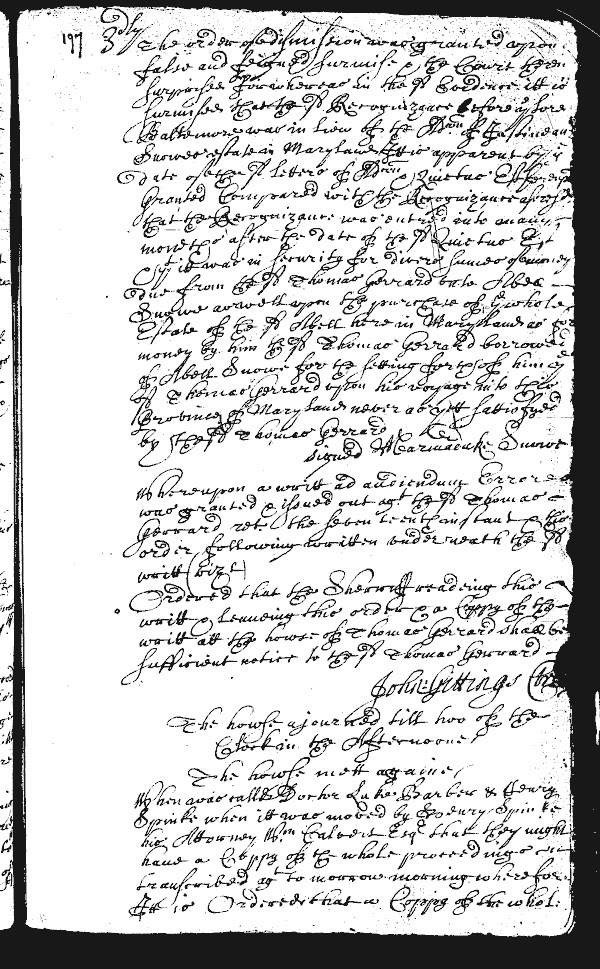 197
3dly The order of dismission was graunted upon
false and feigned surmise & the Court therein
surprised for whereas in the sd Evidence itt is
surmised that the sd Recognizance before
Baltemore was in lieu of the Admon of Justinean
Snowes estate in Maryland Itt is apparent by ye
date of the sd letters of Admon & Quietus Est
Granted Compared with the Recognizance aforesd
that the Recognizance was entred into many
moneths after the date of the sd Quietus Est
itt was in security for divers summes of money
due from the sd Thomas Gerrard unto Abell
Snowe as well upon the purchase of ye whole
Estate of the sd Abell here in Maryland as for
money by him the sd Thomas Gerrard borrowed
of Abell Snowe for the setting forth of him ye
sd Thomas Gerrard upon his voyage into this
Province of Maryland never as yett sattisfyed
by the sd Thomas Gerrard
signed Marmaduke Snowe
Whereupon a writt ad audiendum Errores
was granted & issued out agt the sd Thomas
Gerrard rete the seventeenth instant & this
order following written underneath the sd
writt (vizt)
Ordered that the Sherriff readeing this
writt & leaveing this order & a Coppy of the
writt att the howse of Thomas Gerrard shall be
sufficient notice to the sd Thomas Gerrard
John Gittings
The howse ajourned till two of the
Clock in the Afternoone
The howse mett againe
When was called Doctor Luke Barber & Henry
Spinke when itt was moved by Henry Spinke
his Attorney Wm Calvert Esqr that they might
have a Coppy of the whole proceedings
transcribed agt to morrow morning wherefore
Itt is Ordered that a Coppy of the whole